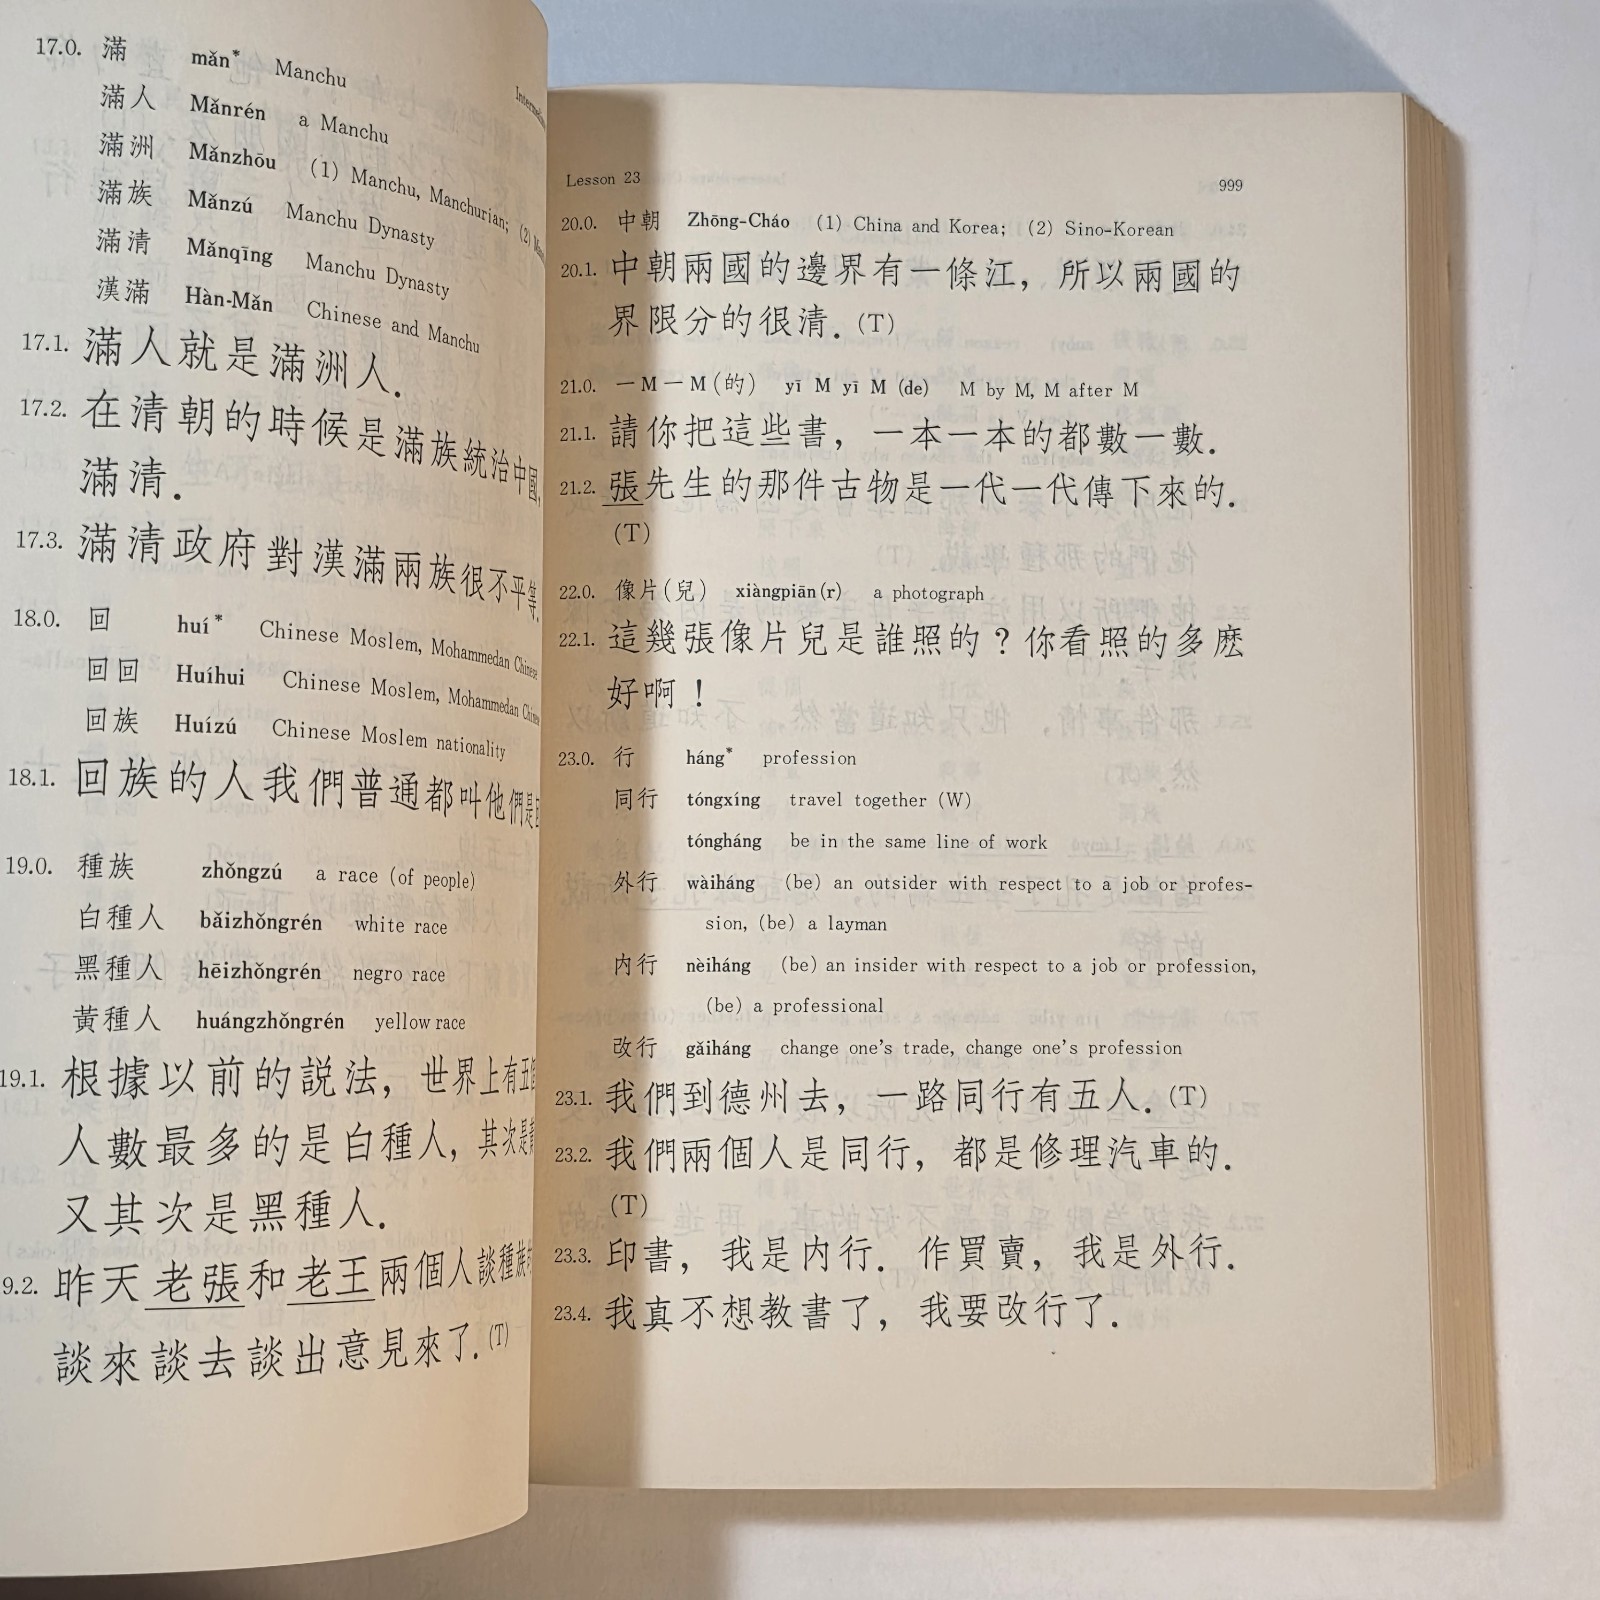 17.0. 滿 mǎn* Manchu
滿人 Mǎnrén a Manchu
滿洲 Mǎnzhōu (1) Manchu, Manchurian; (2)
滿族 Mǎnzú Manchu Dynasty
滿清 Mǎnqīng Manchu Dynasty
漢滿 Hàn-Mǎn Chinese and Manchu
17.1. 滿人就是滿洲人.
17.2. 在清朝的時候是滿族統治中國,
滿清.
17.3. 滿清政府對漢滿兩族很不平等.
18.0. 回 huí* Chinese Moslem, Mohammedan Chinese
回回 Huíhui Chinese Moslem, Mohammedan Chinese
回族 Huízú Chinese Moslem nationality
18.1. 回族的人我們普通都叫他們是回
19.0. 種族 zhǒngzú a race (of people)
白種人 bǎizhǒngrén white race
黑種人 hēizhǒngrén negro race
黃種人 huángzhǒngrén yellow race
19.1. 根據以前的説法, 世界上有五個
人數最多的是白種人, 其次是
又其次是黑種人.
9.2. 昨天老張和老王兩個人談種族的
談來談去談出意見來了. (T)
Lesson 23 999
20.0. 中朝 Zhōng-Cháo (1) China and Korea; (2) Sino-Korean
20.1. 中朝兩國的邊界有一條江, 所以兩國的
界限分的很清. (T)
21.0. 一M一M(的) yī M yī M (de) M by M, M after M
21.1. 請你把這些書, 一本一本的都數一數.
21.2. 張先生的那件古物是一代一代傳下來的.
(T)
22.0. 像片(兒) xiàngpiān(r) a photograph
22.1. 這幾張像片兒是誰照的? 你看照的多麽
好啊!
23.0. 行 háng* profession
同行 tóngxíng travel together (W)
tóngháng be in the same line of work
外行 wàiháng (be) an outsider with respect to a job or profes-
sion, (be) a layman
內行 nèiháng (be) an insider with respect to a job or profession,
(be) a professional
改行 gǎiháng change one's trade, change one's profession
23.1. 我們到德州去, 一路同行有五人. (T)
23.2. 我們兩個人是同行, 都是修理汽車的.
(T)
23.3. 印書, 我是內行. 作買賣, 我是外行.
23.4. 我真不想教書了, 我要改行了.